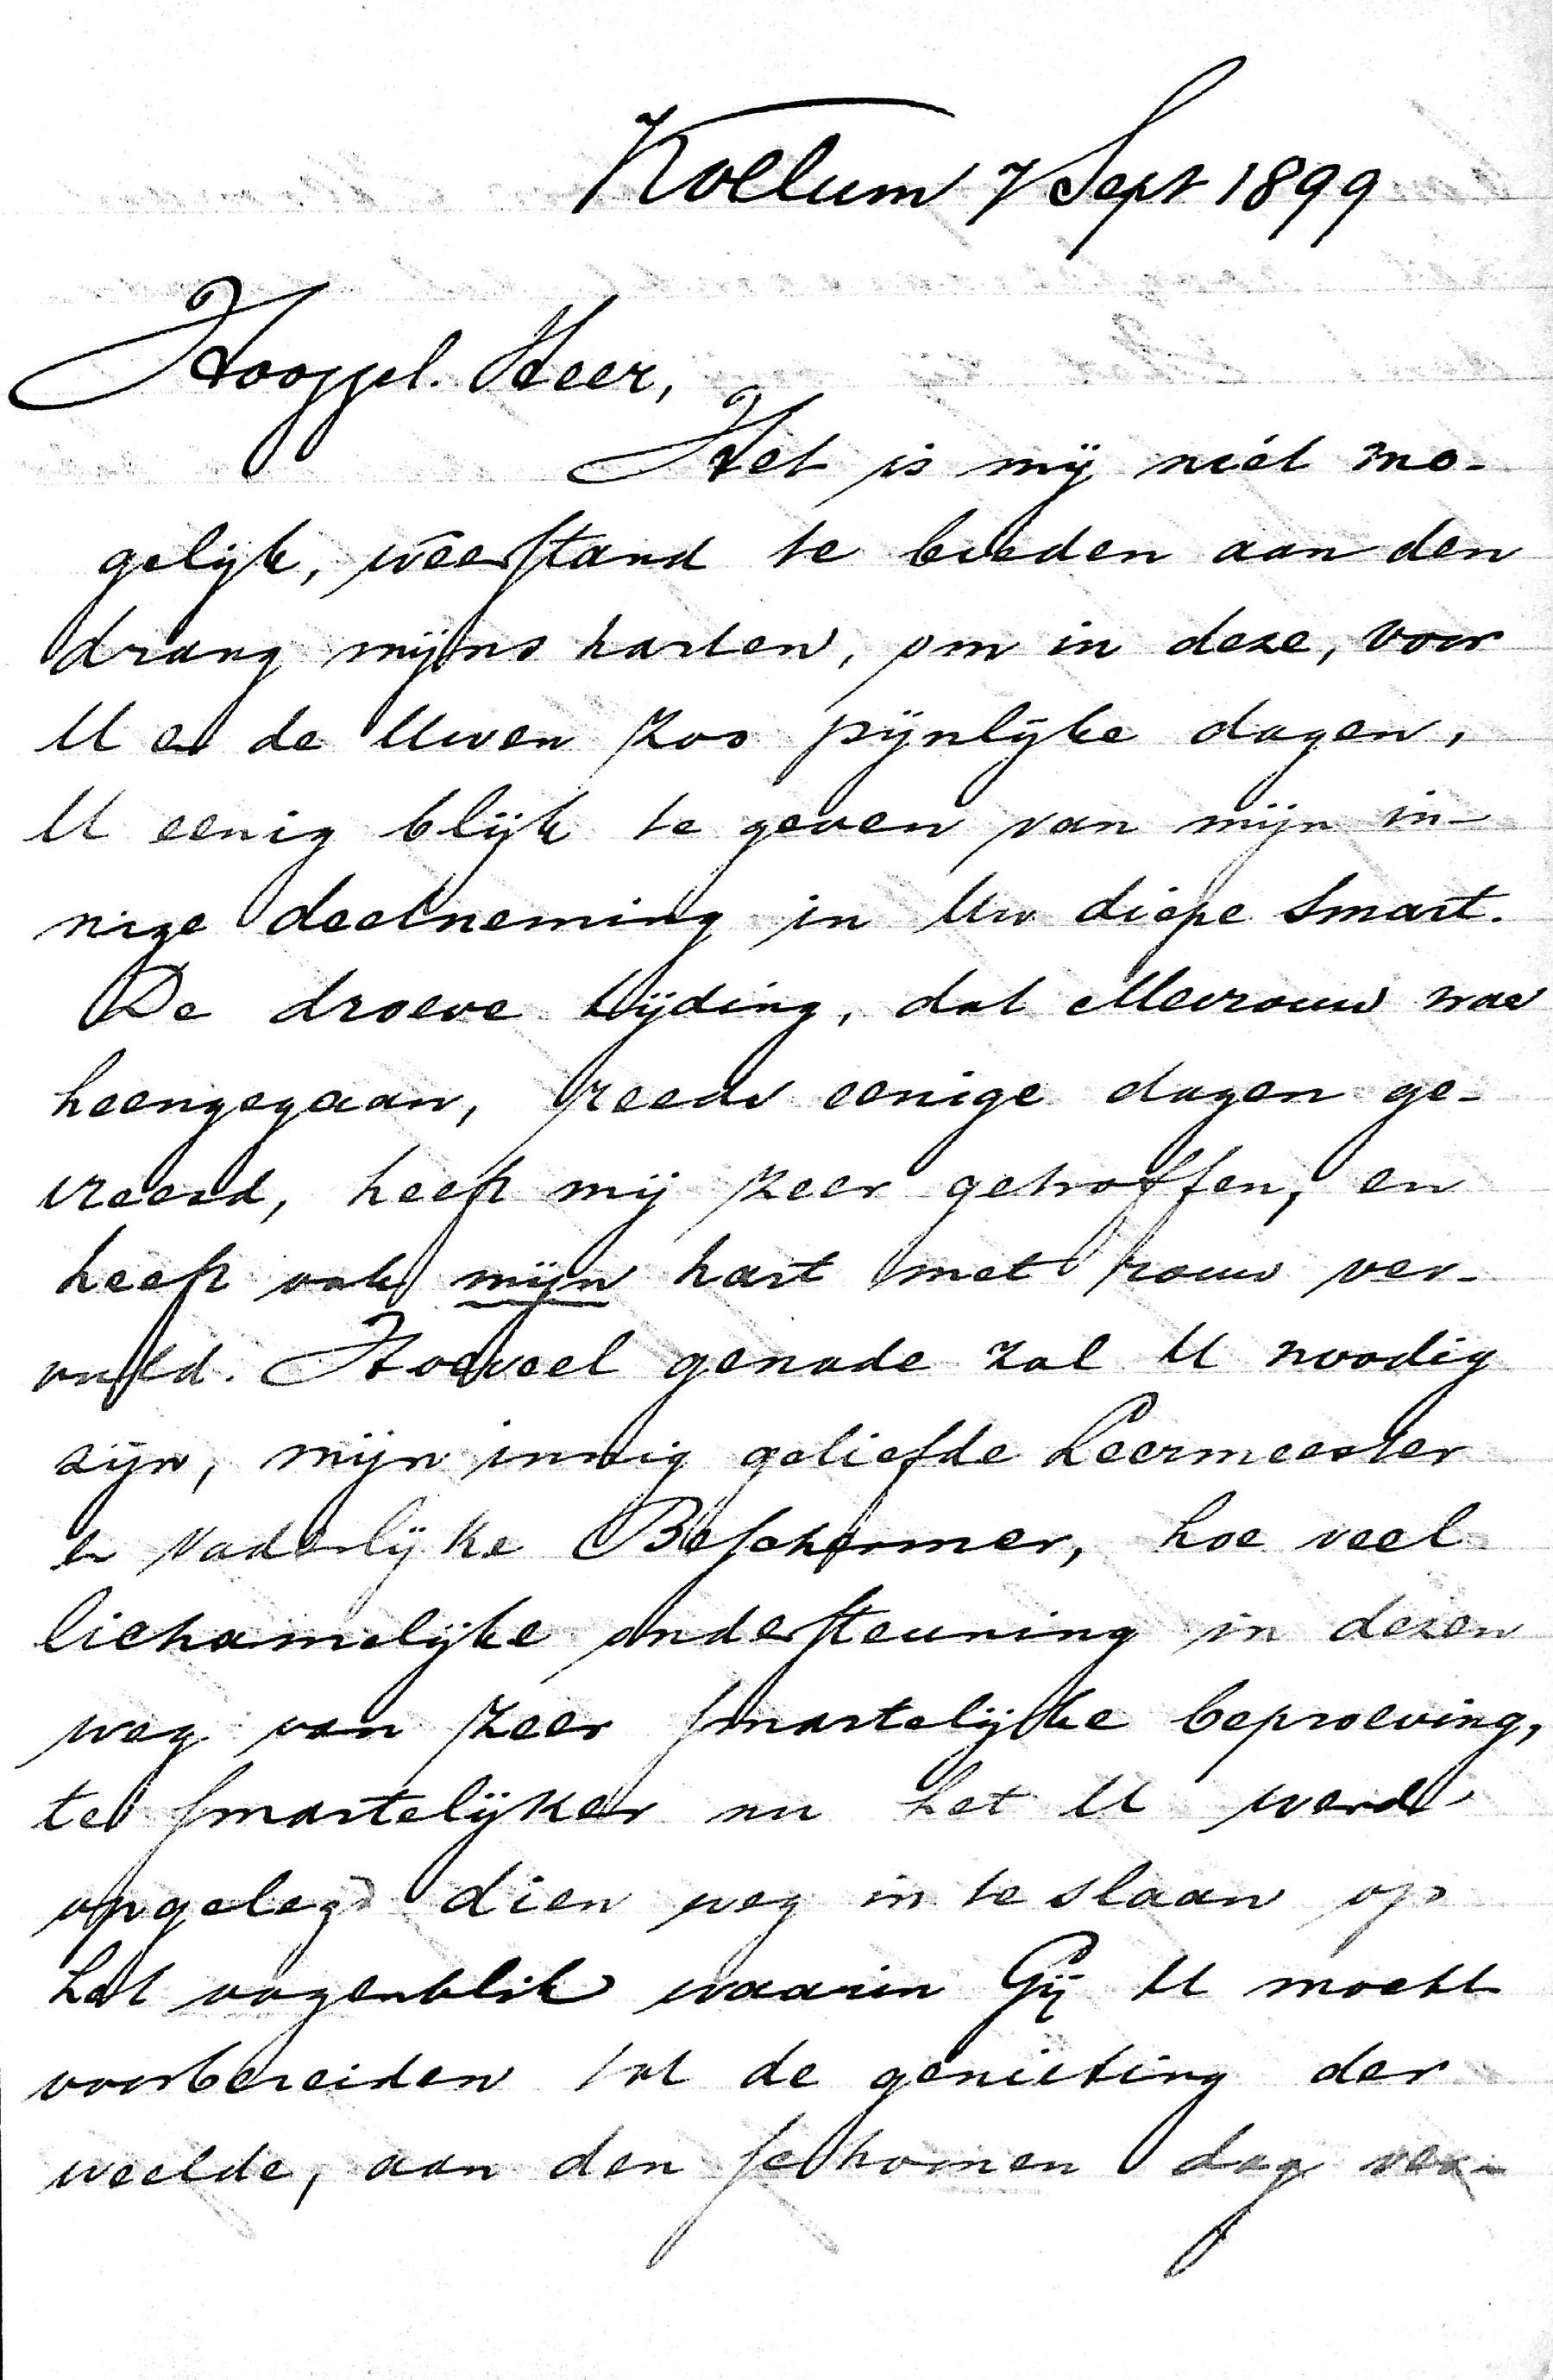 Kollum 7 Sept 1899
Hooggel. Heer,
Het is mij niet mo-
gelijk, weerstand te bieden aan den
drang mijns harten, om in deze, voor
U en de Uwen zoo pijnlijke dagen,
U eenig blijk te geven van mijn in-
nige deelneming in Uw diepe smart.
De droeve tijding, dat Mevrouw was
heengegaan, reeds eenige dagen ge-
vreesd, heeft mij zeer getroffen, en
heeft ook mijn hart met rouw ver-
vuld. Hoeveel genade zal U noodig
zijn, mijn innig geliefde Leermeester
en Vaderlijke Beschermer, hoe veel
lichamelijke ondersteuning in dezen
weg van zeer smartelijke beproeving,
te smartelijker nu het U werd
opgelegd dien weg in te slaan op
het oogenblik waarin Gij U mocht
voorbereiden tot de genieting der
weelde, aan den schoonen dag ver-